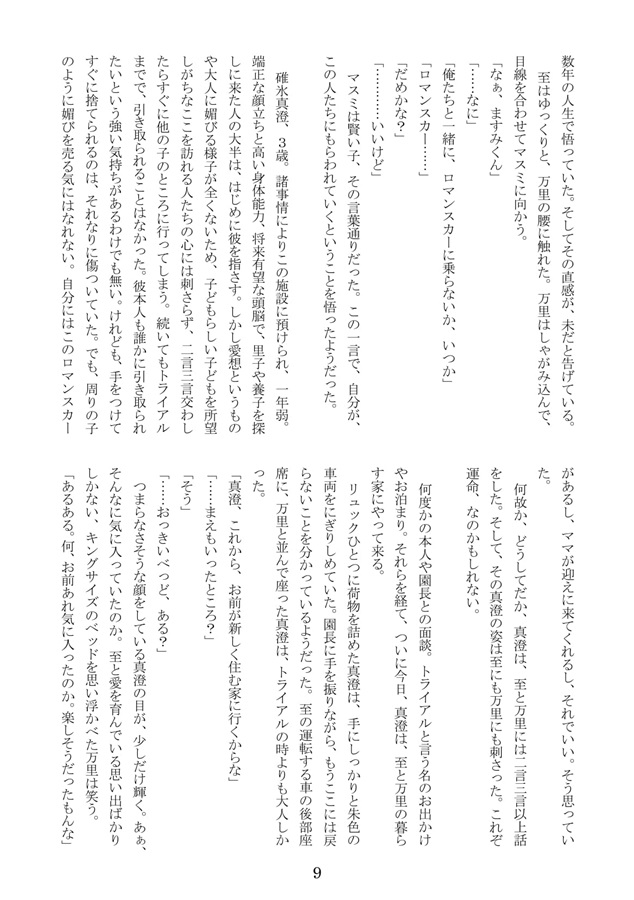 数年の人生で悟っていた。そしてその直感が、未だと告げている。
至はゆっくりと、万里の腰に触れた。万里はしゃがみ込んで、
目線を合わせてマスミに向かう。
「なぁ、ますみくん」
「……なに」
「俺たちと一緒に、ロマンスカーに乗らないか、いつか」
「ロマンスカー……」
「だめかな？」
「…………いいけど」
マスミは賢い子、その言葉通りだった。この一言で、自分が、
この人たちにもらわれていくということを悟ったようだった。
碓氷真澄、３歳。諸事情によりこの施設に預けられ、一年弱。
端正な顔立ちと高い身体能力、将来有望な頭脳で、里子や養子を探
しに来た人の大半は、はじめに彼を指さす。しかし愛想というもの
や大人に媚びる様子が全くないため、子どもらしい子どもを所望
しがちなここを訪れる人たちの心には刺さらず、二言三言交わし
たらすぐに他の子のところに行ってしまう。続いてもトライアル
までで、引き取られることはなかった。彼本人も誰かに引き取られ
たいという強い気持ちがあるわけでも無い。けれども、手をつけて
すぐに捨てられるのは、それなりに傷ついていた。でも、周りの子
のように媚びを売る気にはなれない。自分にはこのロマンスカー
があるし、ママが迎えに来てくれるし、それでいい。そう思ってい
た。
何故か、どうしてだか、真澄は、至と万里には二言三言以上話
をした。そして、その真澄の姿は至にも万里にも刺さった。これぞ
運命、なのかもしれない。
何度かの本人や園長との面談。トライアルと言う名のお出かけ
やお泊まり。それらを経て、ついに今日、真澄は、至と万里の暮ら
す家にやって来る。
リュックひとつに荷物を詰めた真澄は、手にしっかりと朱色の
車両をにぎりしめていた。園長に手を振りながら、もうここには戻
らないことを分かっているようだった。至の運転する車の後部座
席に、万里と並んで座った真澄は、トライアルの時よりも大人しか
った。
「真澄、これから、お前が新しく住む家に行くからな」
「……まえもいったところ？」
「そう」
「……おっきいべっど、ある？」
つまらなさそうな顔をしている真澄の目が、少しだけ輝く。あぁ、
そんなに気に入っていたのか。至と愛を育んでいる思い出ばかり
しかない、キングサイズのベッドを思い浮かべた万里は笑う。
「あるある。何、お前あれ気に入ったのか。楽しそうだったもんな」
9